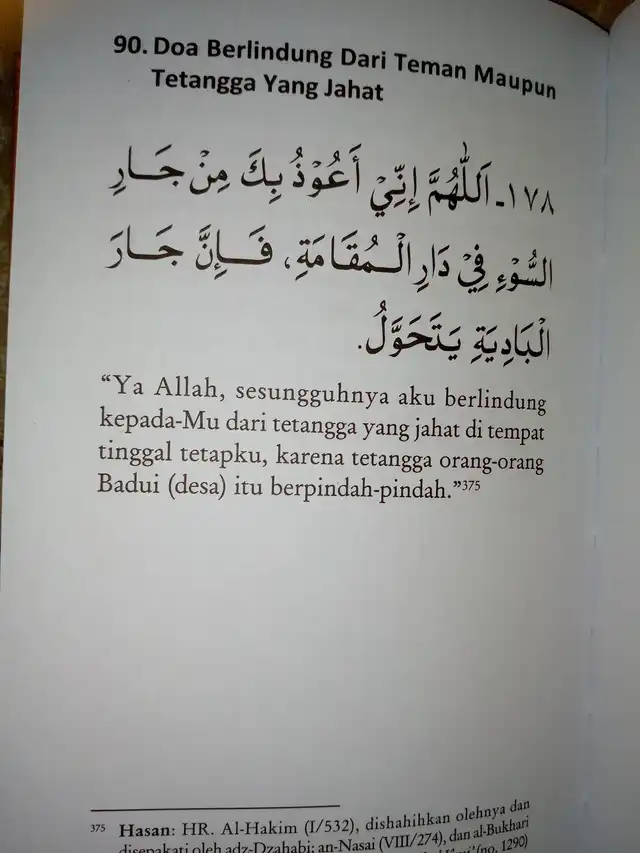 90. Doa Berlindung Dari Teman Maupun
Tetangga Yang Jahat
١٧٨ـ اَللّٰهُمَّ إِنِّيْ أَعُوْذُ بِكَ مِنْ جَـارِ
السُّوْءِ فِيْ دَارِ الْـمُقَامَةِ، فَـإِنَّ جَـارَ
الْبَادِيَةِ يَتَحَوَّلُ.
“Ya Allah, sesungguhnya aku berlindung
kepada-Mu dari tetangga yang jahat di tempat
tinggal tetapku, karena tetangga orang-orang
Badui (desa) itu berpindah-pindah.”375
375 Hasan: HR. Al-Hakim (I/532), dishahihkan olehnya dan
disepakati oleh adz-Dzahabi; an-Nasai (VIII/274), dan al-Bukhari
(no. 1290)